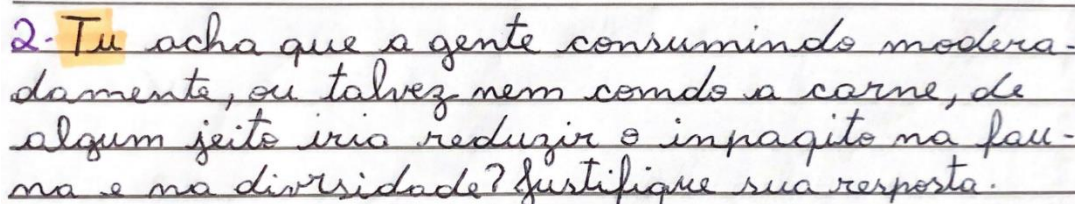 2. Tu acha que a gente consumindo modera-
damente, ou talvez nem comdo a carne, de
algum jeito iria reduzir o inpaqito na fau-
na e na divrsidade? Justifique sua resposta.